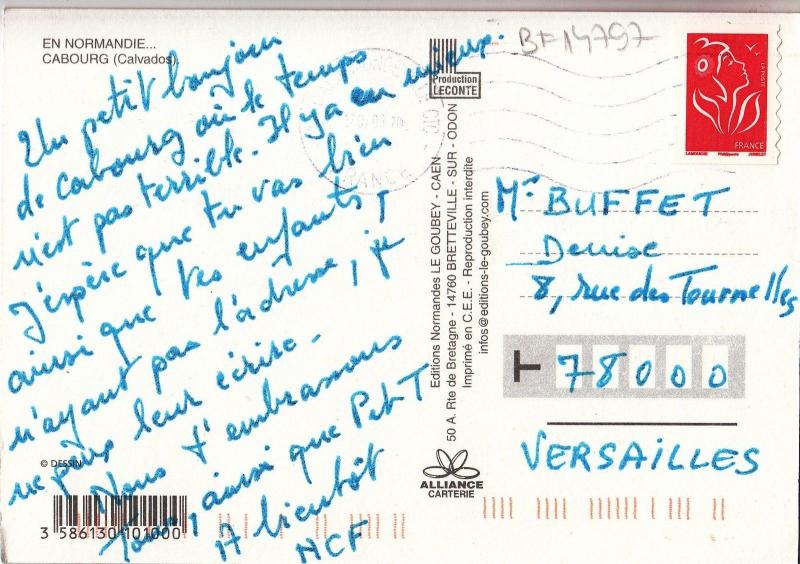 EN NORMANDIE...
CABOURG (Calvados).
Un petit bonjour
de Cabourg où le temps
n'est pas terrible. Il y a eu mieux.
J'espère que tu vas bien
ainsi que tes enfants,
n'ayant pas l'adresse, je
ne puis leur écrire.
Nous t'embrassons
tous, ainsi que P et T
A bientôt
MCF
© DESSIN
3 586130 101000
Production
LECONTE
Editions Normandes LE GOUBEY - CAEN
50 A. Rte de Bretagne - 14760 BRETTEVILLE - SUR - ODON
Imprimé en C.E.E. - Reproduction interdite
infos@editions-le-goubey.com
ALLIANCE
CARTERIE
BF14797
LA POSTE
FRANCE
LAMOUCHE
JUMELET
FRANCE
Me BUFFET
Denise
8, rue des Tournelles
T 78000
VERSAILLES